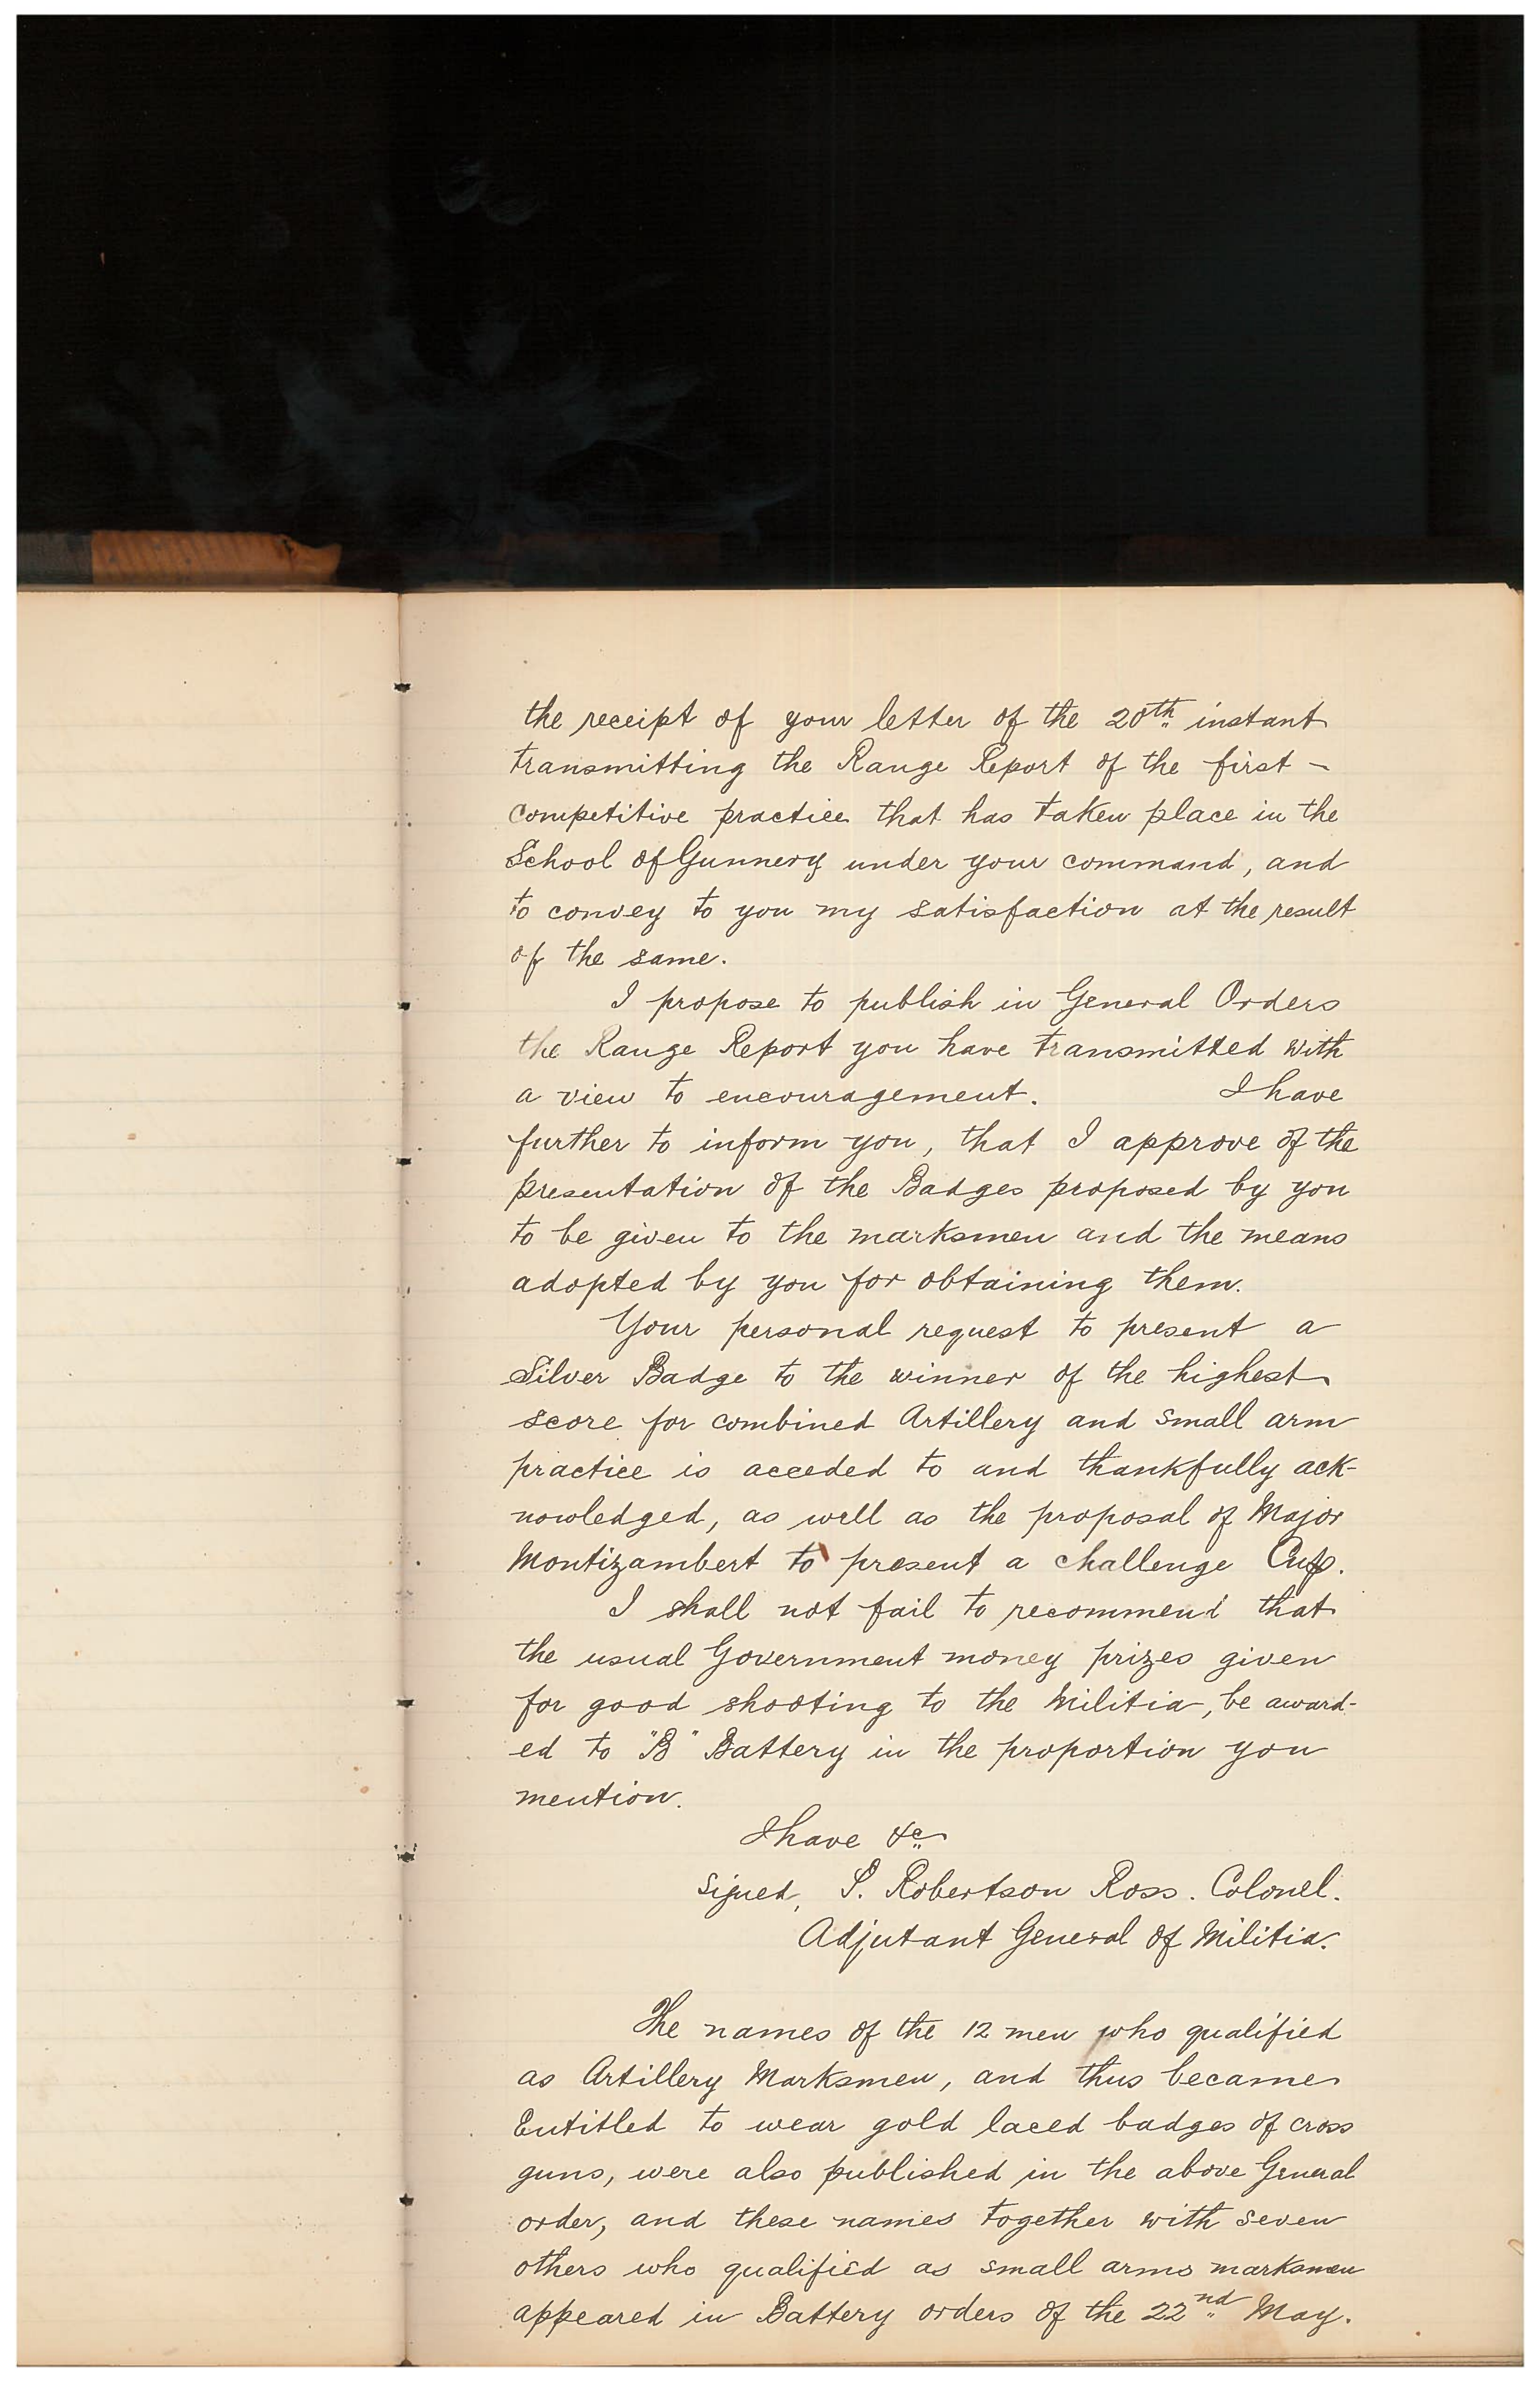 the receipt of your letter of the 20th instant
transmitting the Range Report of the first -
competitive practice that has taken place in the
School of Gunnery under your command, and
to convey to you my satisfaction at the result
of the same.
I propose to publish in General Orders
the Range Report you have transmitted with
a view to encouragement. I have
further to inform you, that I approve of the
presentation of the Badges proposed by you
to be given to the marksmen and the means
adopted by you for obtaining them.
Your personal request to present a
Silver Badge to the winner of the highest
score for combined Artillery and small arm
practice is acceded to and thankfully ack-
nowledged, as well as the proposal of Major
Montizambert to present a challenge Cup.
I shall not fail to recommend that
the usual Government money prizes given
for good shooting to the Militia, be award-
ed to "B" Battery in the proportion you
mention.
I have &c
signed, P. Robertson Ross. Colonel.
Adjutant General of Militia.
The names of the 12 men who qualified
as Artillery Marksmen, and thus became
Entitled to wear gold laced badges of cross
guns, were also published in the above General
order, and these names together with seven
others who qualified as small arms marksmen
appeared in Battery orders of the 22nd May.